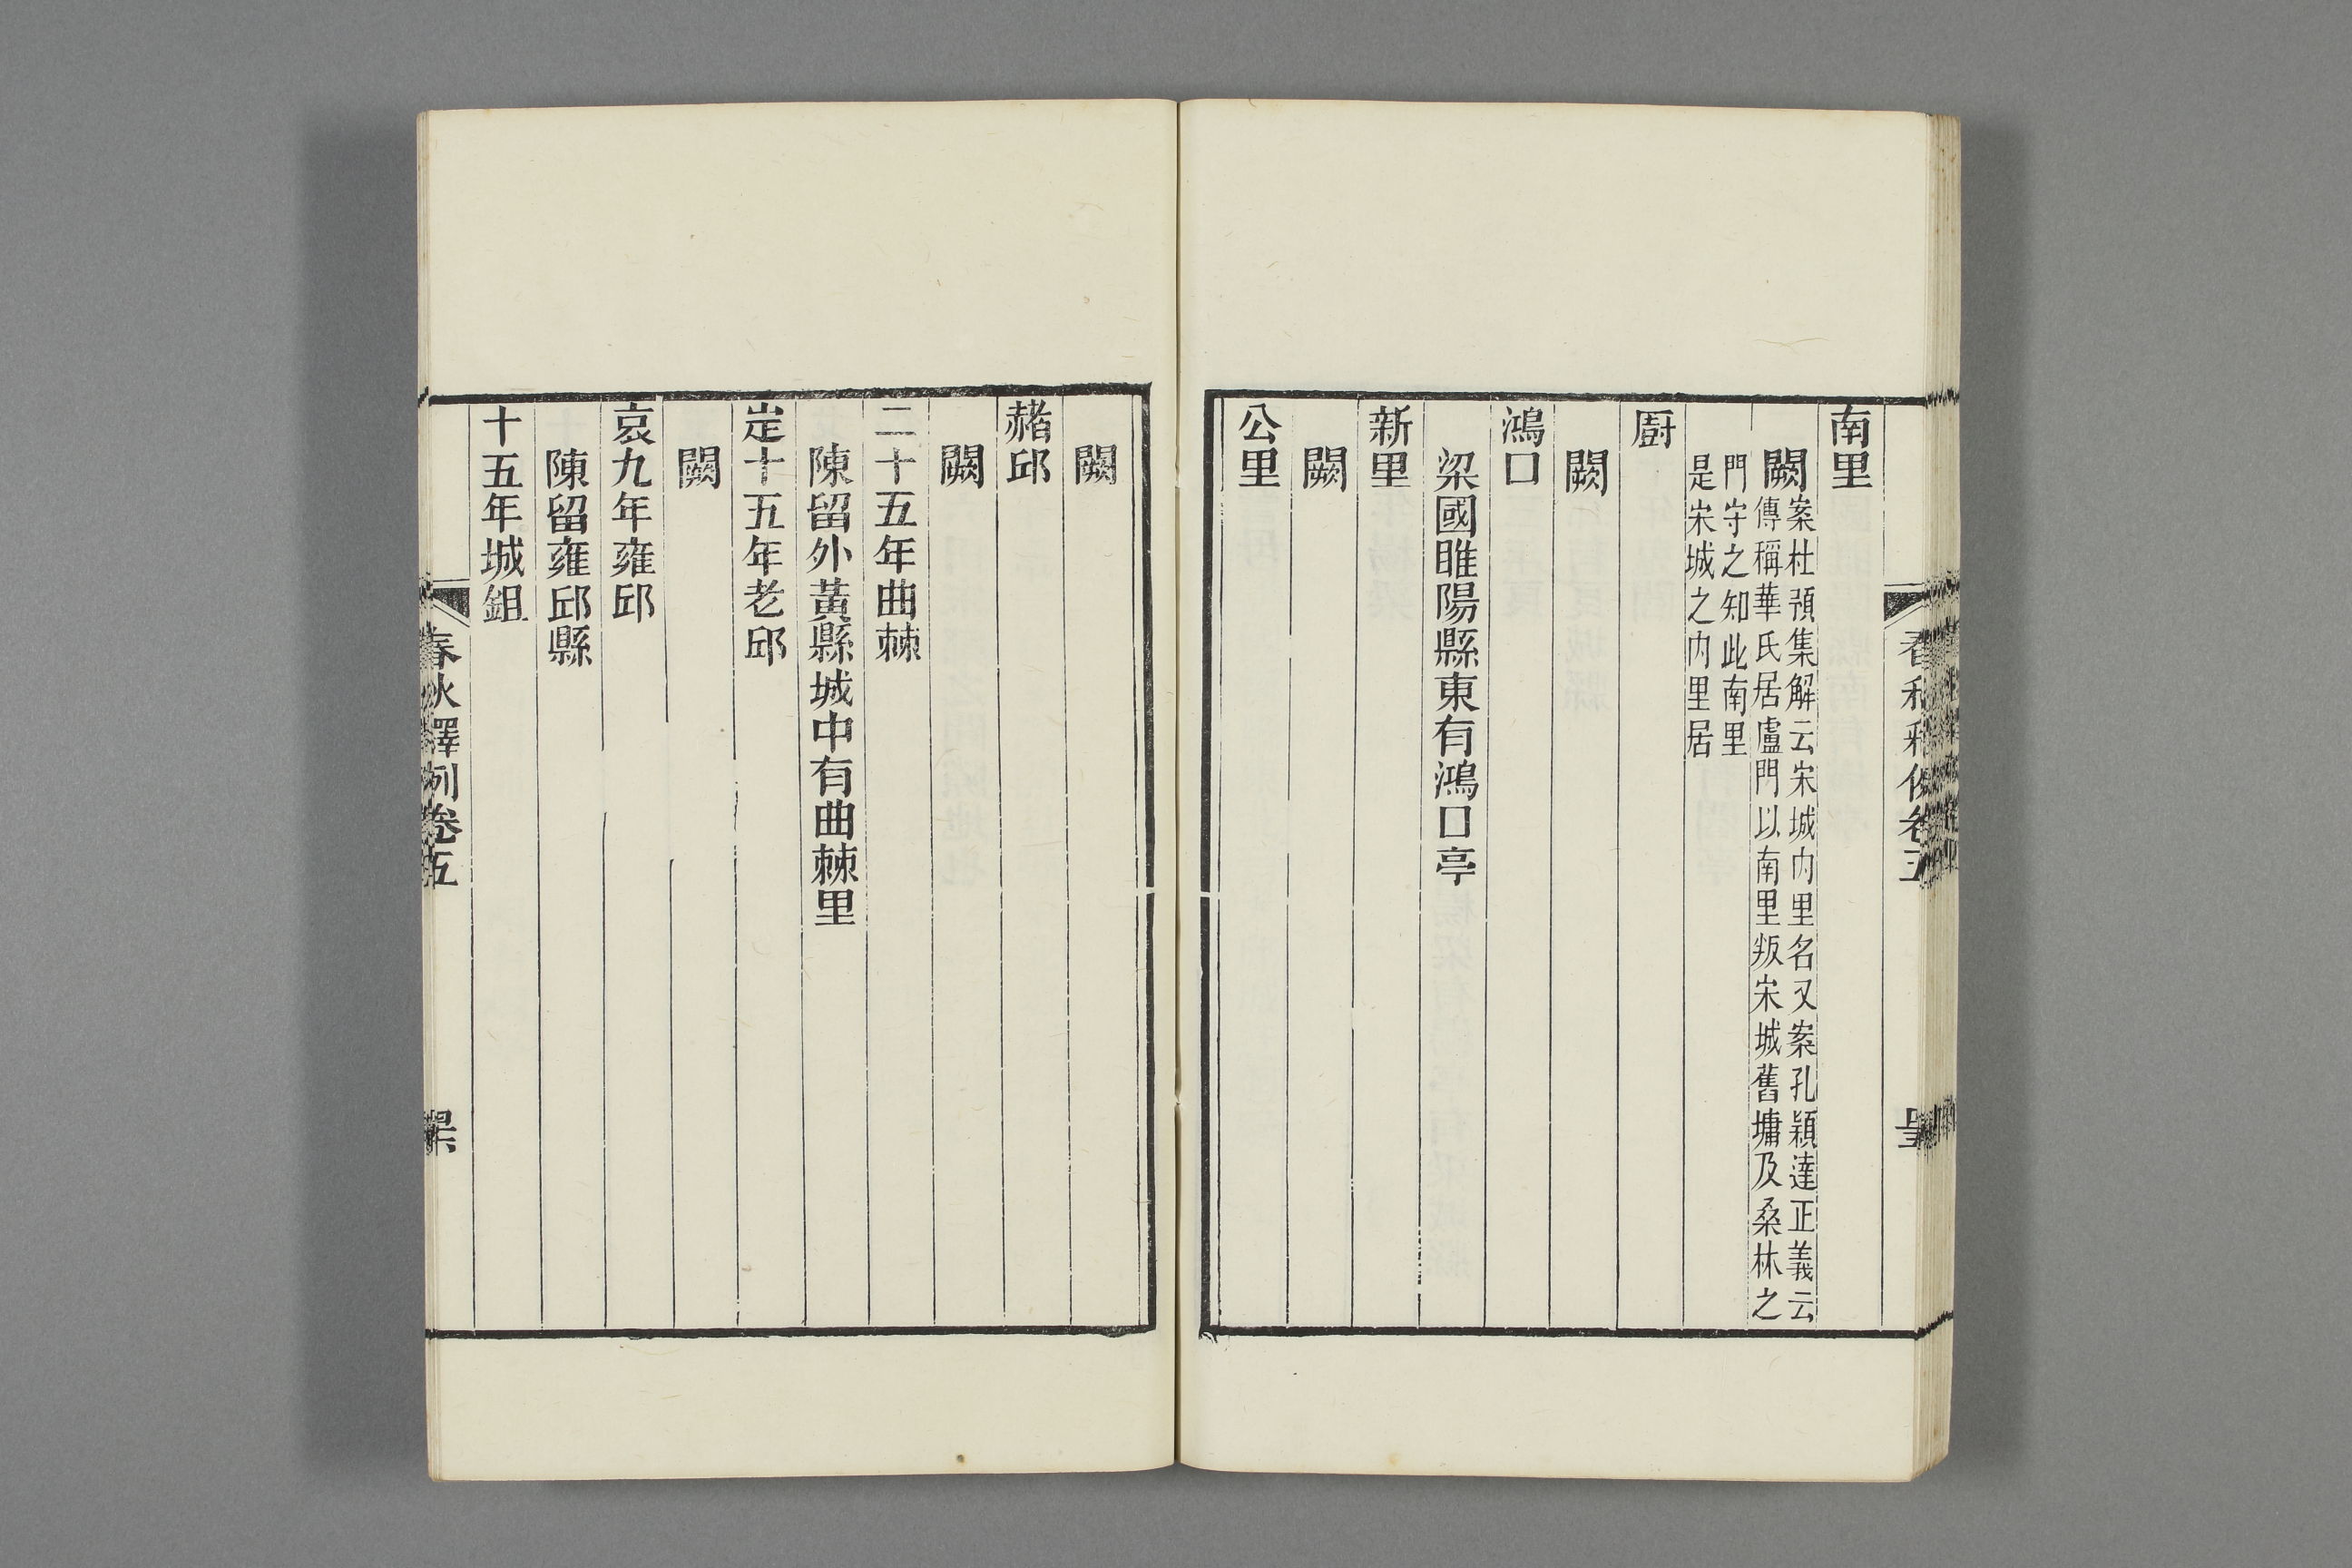 南里
闕案杜預集解云宋城内里名又案孔穎達正義云
傳稱華氏居盧門以南里叛宋城舊墉及桑林之
門守之知此南里
是宋城之内里居
廚
闕
鴻口
梁國睢陽縣東有鴻口亭
新里
闕
公里
闕
赭邱
闕
二十五年曲棘
陳留外黃縣城中有曲棘里
定十五年老邱
闕
哀九年雍邱
陳留雍邱縣
十五年城鉏
春秋釋例卷五